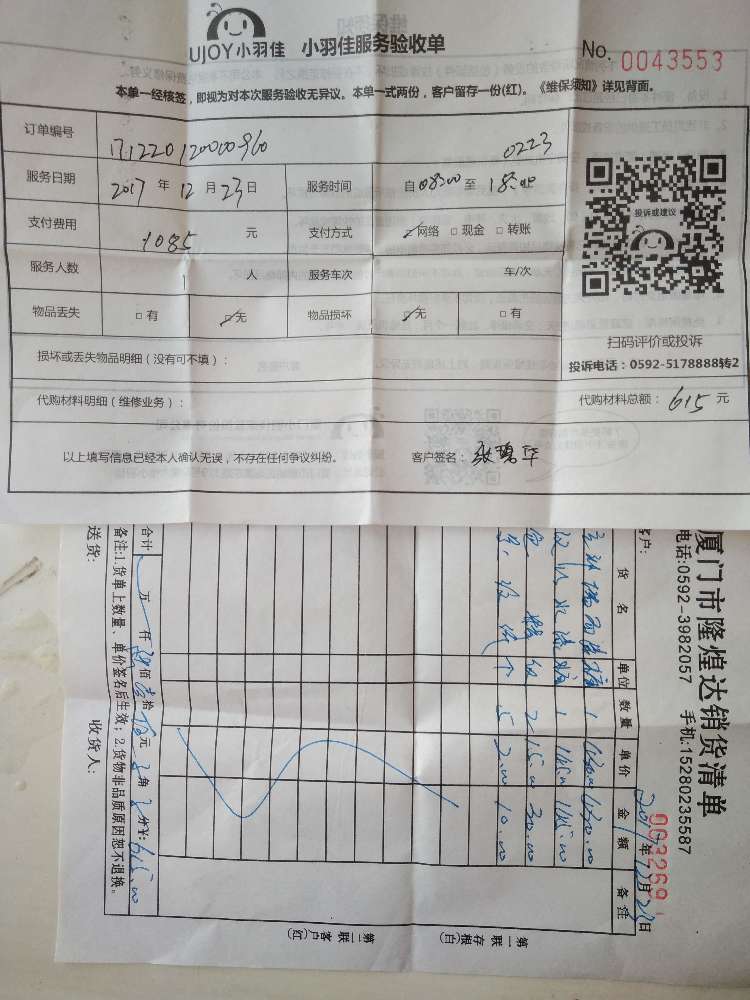 UJOY小羽佳 小羽佳服务验收单
No. 0043553
本单一经核签，即视为对本次服务验收无异议。本单一式两份，客户留存一份(红)。《维保须知》详见背面。
订单编号 171220120000960 0223
服务日期 2017年12月23日 服务时间 自08:00至18:00
支付费用 1085元 支付方式 ☑网络 □现金 □转账
服务人数 1人 服务车次 车/次
物品丢失 □有 ☑无 物品损坏 ☑无 □有
投诉或建议
扫码评价或投诉
投诉电话：0592-5178888转2
损坏或丢失物品明细（没有可不填）：
代购材料明细（维修业务）：
代购材料总额：615元
以上填写信息已经本人确认无误，不存在任何争议纠纷。 客户签名：
厦门市隆煌达销货清单
电话:0592-3982057 手机:15280235587
0003269
客户： 2017年12月23日
货名 单位 数量 单价 金额 备注
1
1
2 15.00 30.00
5 2.00 10.00
合计 万 仟 佰 拾 元 角 分¥:615.00
备注:1.货单上数量、单价签名后生效；2.货物非品质原因恕不退换。
送货： 收货人：
第一联存根(白) 第二联客户(红)